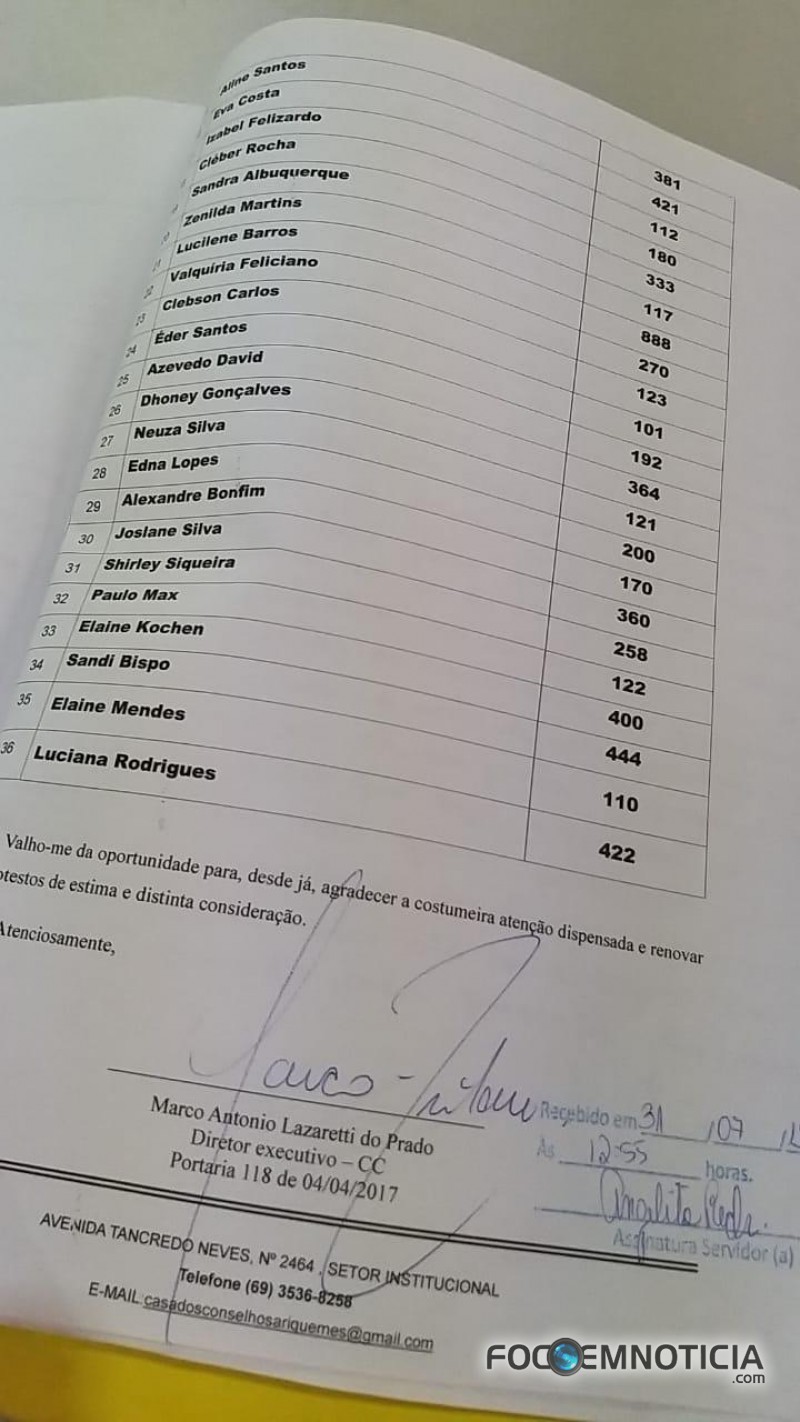 Aline Santos 381
Eva Costa 421
Izabel Felizardo 112
Cléber Rocha 180
Sandra Albuquerque 333
Zenilda Martins 117
Lucilene Barros 888
22 Valquíria Feliciano 270
23 Clebson Carlos 123
24 Éder Santos 101
25 Azevedo David 192
26 Dhoney Gonçalves 364
27 Neuza Silva 121
28 Edna Lopes 200
29 Alexandre Bonfim 170
30 Josiane Silva 360
31 Shirley Siqueira 258
32 Paulo Max 122
33 Elaine Kochen 400
34 Sandi Bispo 444
35 Elaine Mendes 110
36 Luciana Rodrigues 422
Valho-me da oportunidade para, desde já, agradecer a costumeira atenção dispensada e renovar
otestos de estima e distinta consideração.
Atenciosamente,
Marco Antonio Lazaretti do Prado
Diretor executivo – CC
Portaria 118 de 04/04/2017
Recebido em 31 /07 /
As 12:55 horas.
Assinatura Servidor (a)
AVENIDA TANCREDO NEVES, Nº 2464 , SETOR INSTITUCIONAL
Telefone (69) 3536-8258
E-MAIL:casadosconselhosariquemes@gmail.com
FOCOEMNOTICIA
.com